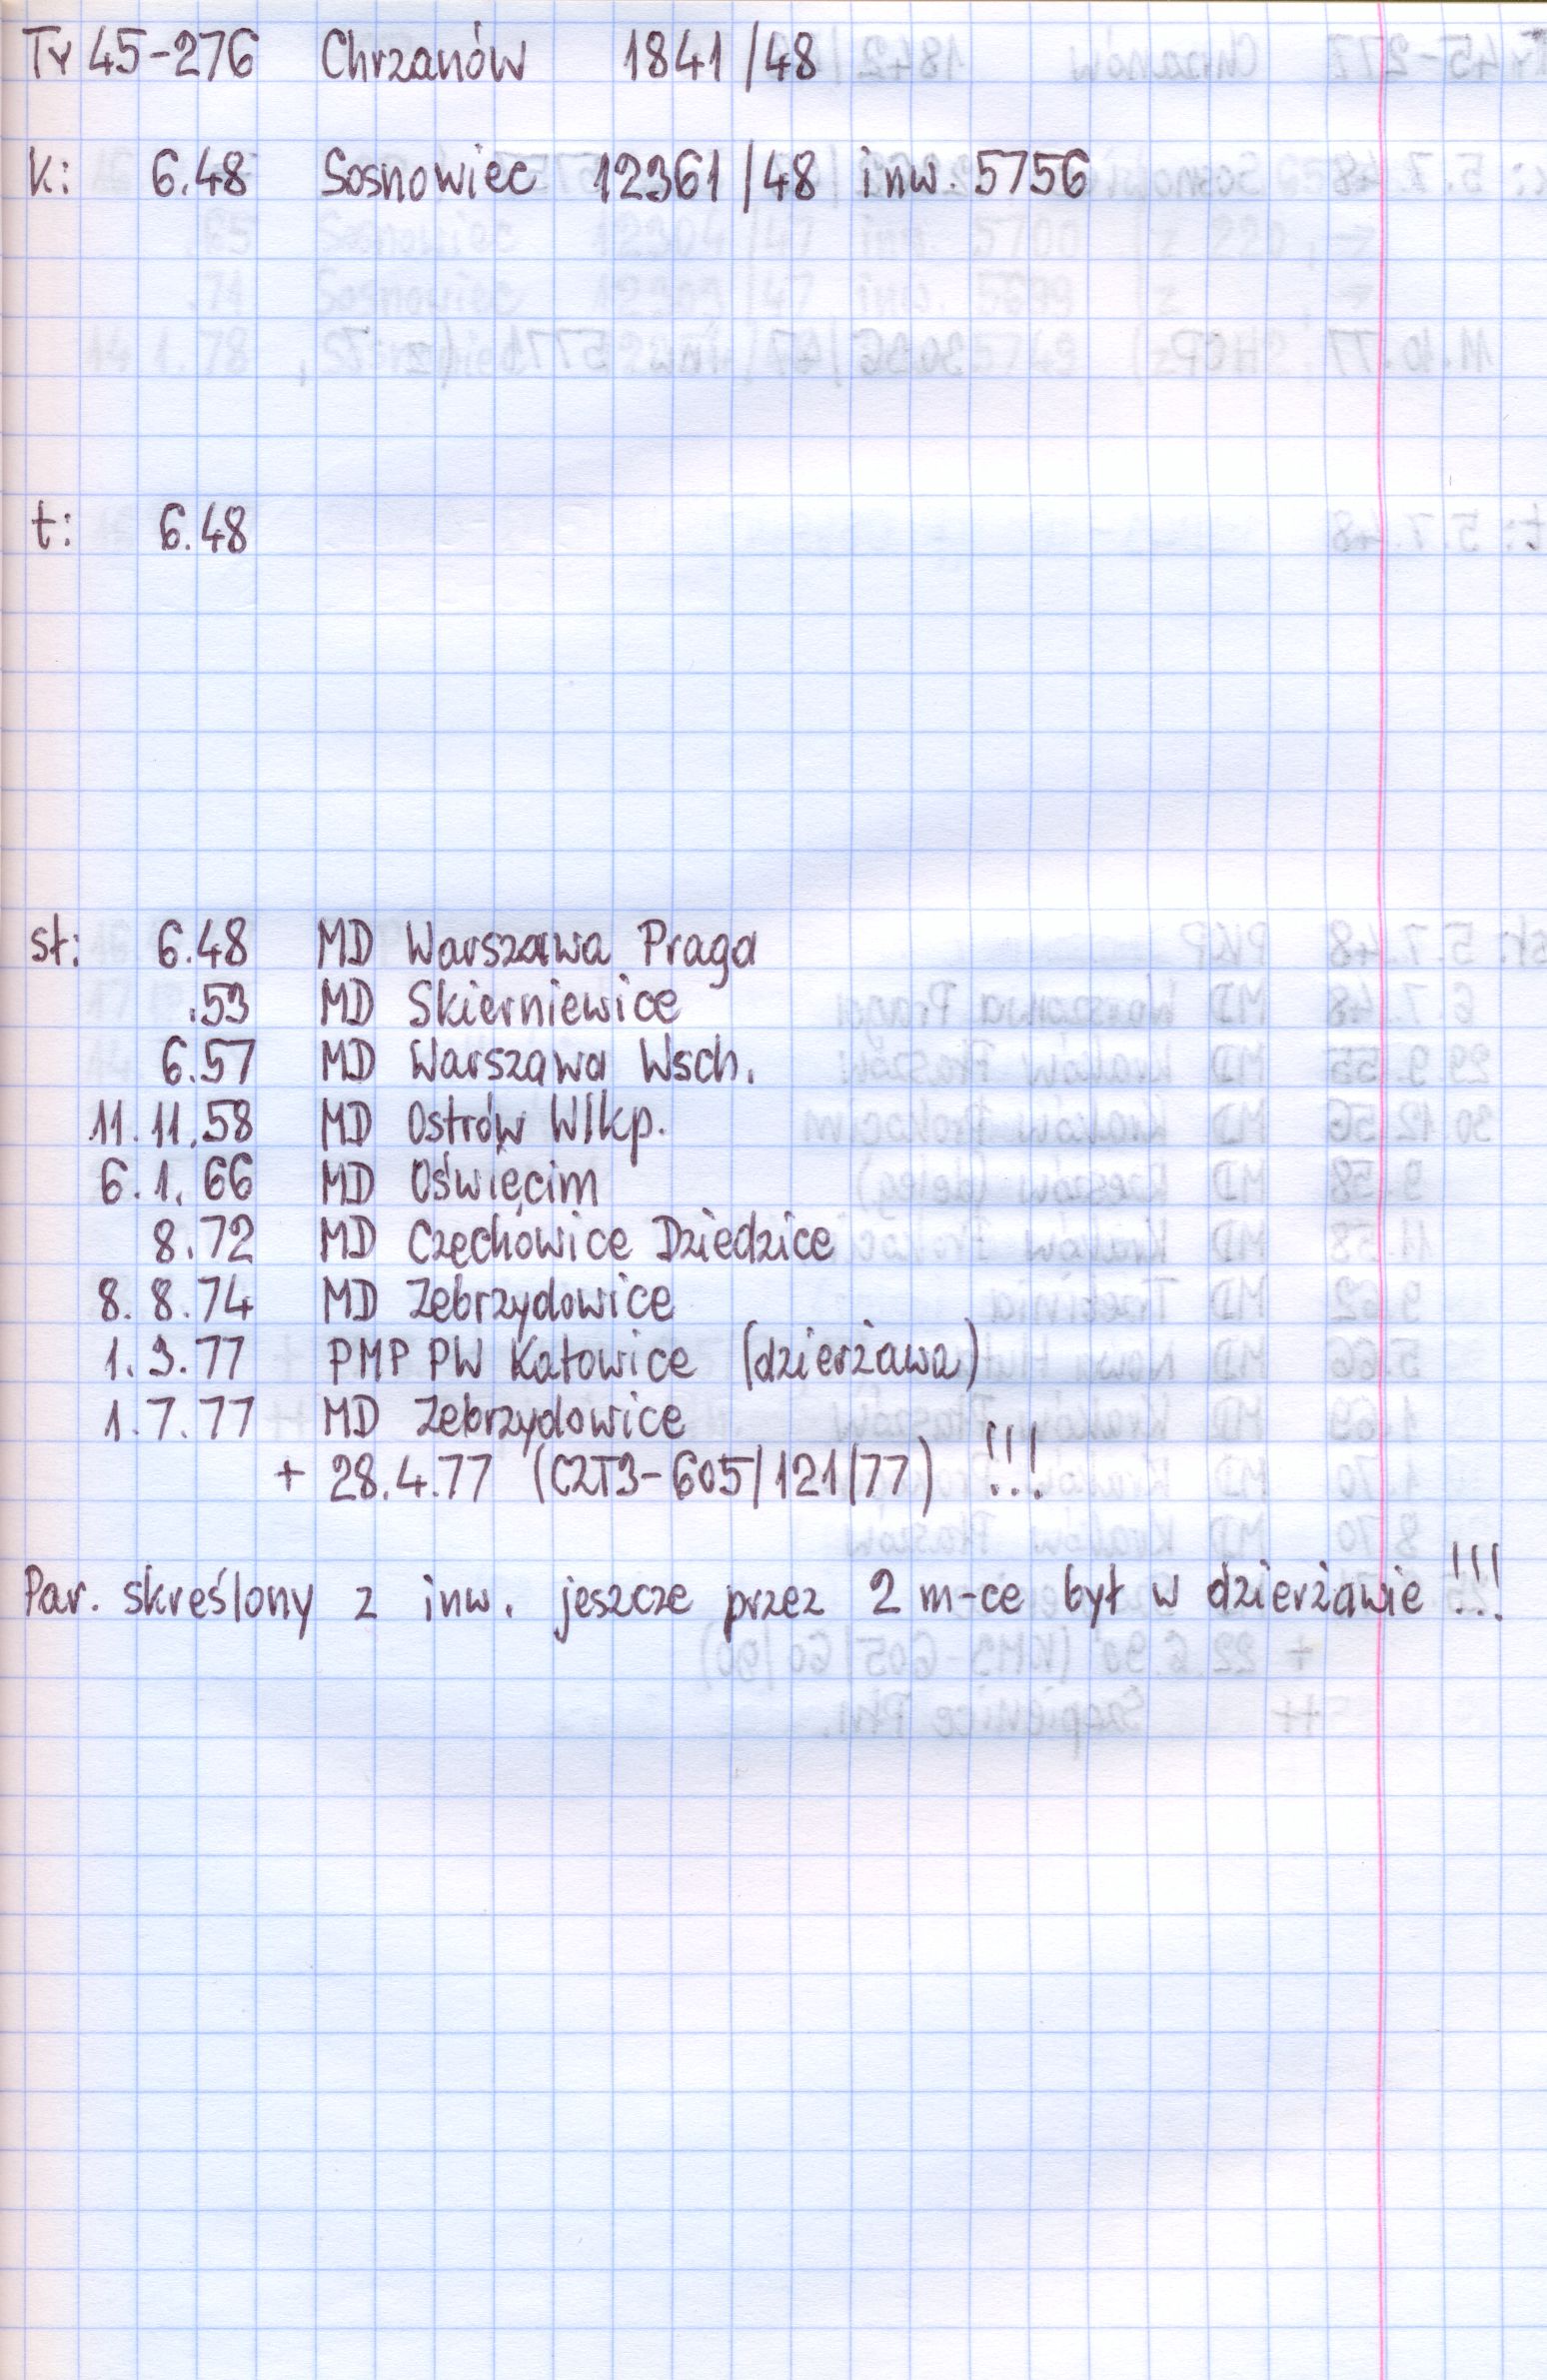 Ty 45-276 Chrzanów 1841/48
k: 6.48 Sosnowiec 12361/48 inw. 5756
t: 6.48
st: 6.48 MD Warszawa Praga
.53 MD Skierniewice
6.57 MD Warszawa Wsch.
11.11.58 MD Ostrów Wlkp.
6.1.66 MD Oświęcim
8.72 MD Czechowice Dziedzice
8.8.74 MD Zebrzydowice
1.3.77 PMP PW Katowice (dzierżawa)
1.7.77 MD Zebrzydowice
+ 28.4.77 (CZT3-605/121/77) !!!
Par. skreślony z inw. jeszcze przez 2 m-ce był w dzierżawie !!!